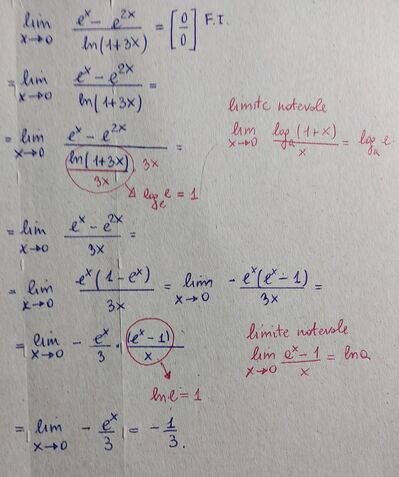 lim x→0 (e^x − e^2x)/(ln(1+3x)) = [0/0] F.I.
= lim x→0 (e^x − e^2x)/(ln(1+3x)) =
limite notevole
lim x→0 (log_a(1+x))/x = log_a e
= lim x→0 (e^x − e^2x)/((ln(1+3x))/(3x) · 3x) =
log_e e = 1
= lim x→0 (e^x − e^2x)/(3x) =
= lim x→0 (e^x(1−e^x))/(3x) = lim x→0 − (e^x(e^x−1))/(3x) =
= lim x→0 − e^x/3 · (e^x−1)/x
limite notevole
lim x→0 (e^x−1)/x = ln a
ln e = 1
= lim x→0 − e^x/3 = − 1/3.